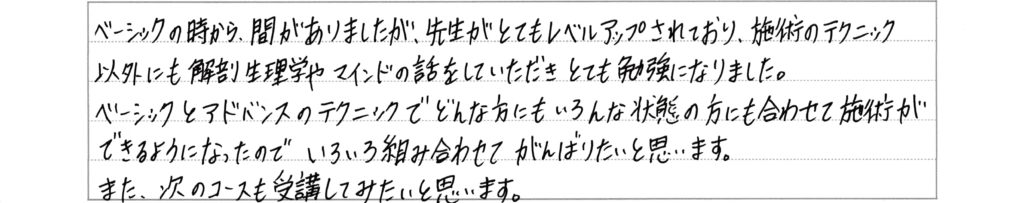 ベーシックの時から、間がありましたが、先生がとてもレベルアップされており、施術のテクニック
以外にも解剖生理学やマインドの話をしていただきとても勉強になりました。
ベーシックとアドバンスのテクニックでどんな方にもいろんな状態の方にも合わせて施術が
できるようになったのでいろいろ組み合わせてがんばりたいと思います。
また、次のコースも受講してみたいと思います。